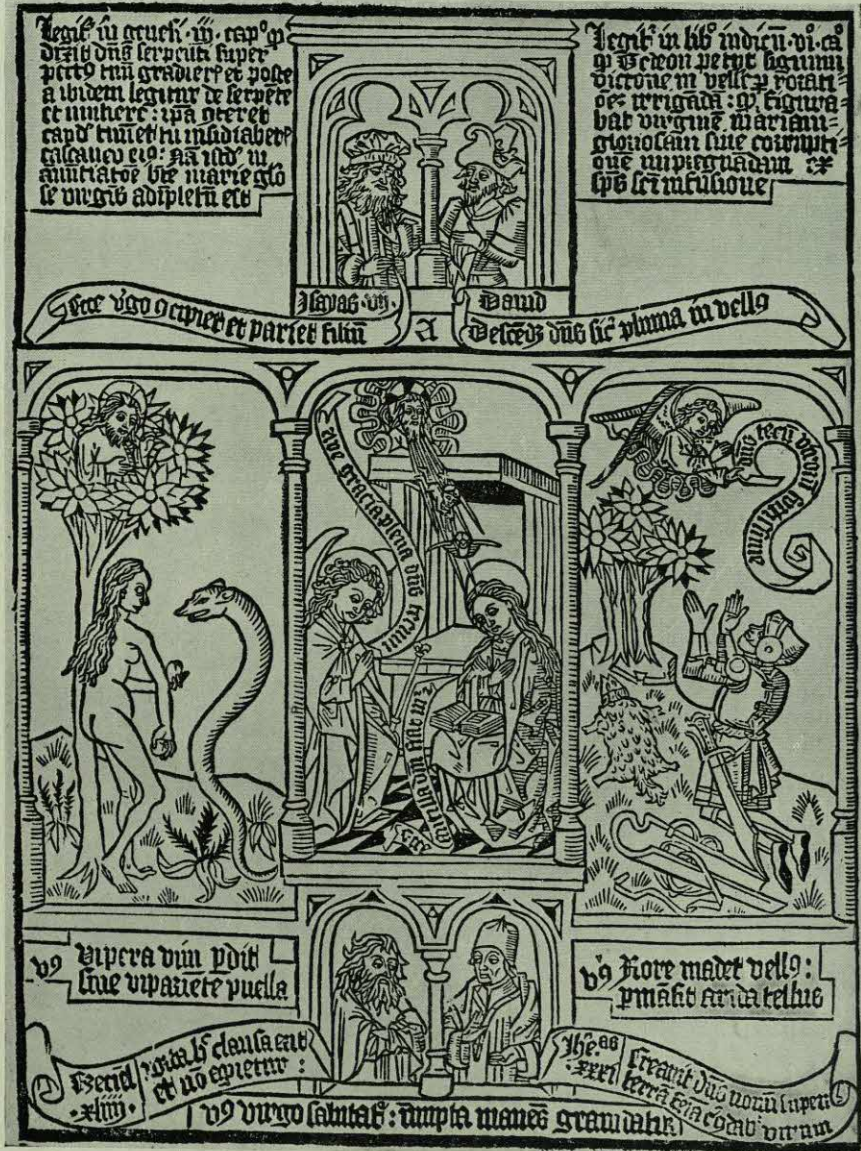 Legit͛ in genesi · iij · cap° ꝙ
dixit dn̄s serpenti super
pect⁹ tuū gradier͛ et poste
a ibidem legitur de serpēte
et muliere : ip̄a ɔteret
caput tuū et tu insidiaber͛
calcaneo ei⁹ : Nā istd̄ in
annūtiatōe bt̄e marie glo
se virgis adīpletū est
Legit͛ in lib° iudicū · vi · ca°
ꝙ Gedeon petyt signum
victorie in vell͛e ꝑ
irrigādā : ꝙ figura-
bat virginē mariam
gloriosam sine corrupti-
one īmpregnadam ex
sp̄s sc̄i infusione
Isayas · vij ·
Dauid
Ecce v͛go ɔcipiet et pariet filiū
A
Descēdz dn̄s sic͛ pluuia in vell⁹
ave gracia plena dn̄s tecum
Ecce ancilla dn̄i fiat m͛
dn̄s tecū virorū fortissime
v⁹ Vipera vim ꝑdit
sine vi pariēte puella
v⁹ Rore madet vell⁹ :
ꝑmāsit arida tellus
Ezeciel
· xliiij ·
porta h͛ clausa erit
et nō apietur :
Jhe͛.as
· xxxi
Creavit dn̄s nouū super
terrā virum
v⁹ virgo salutat͛ : īnupta manens grauidat͛